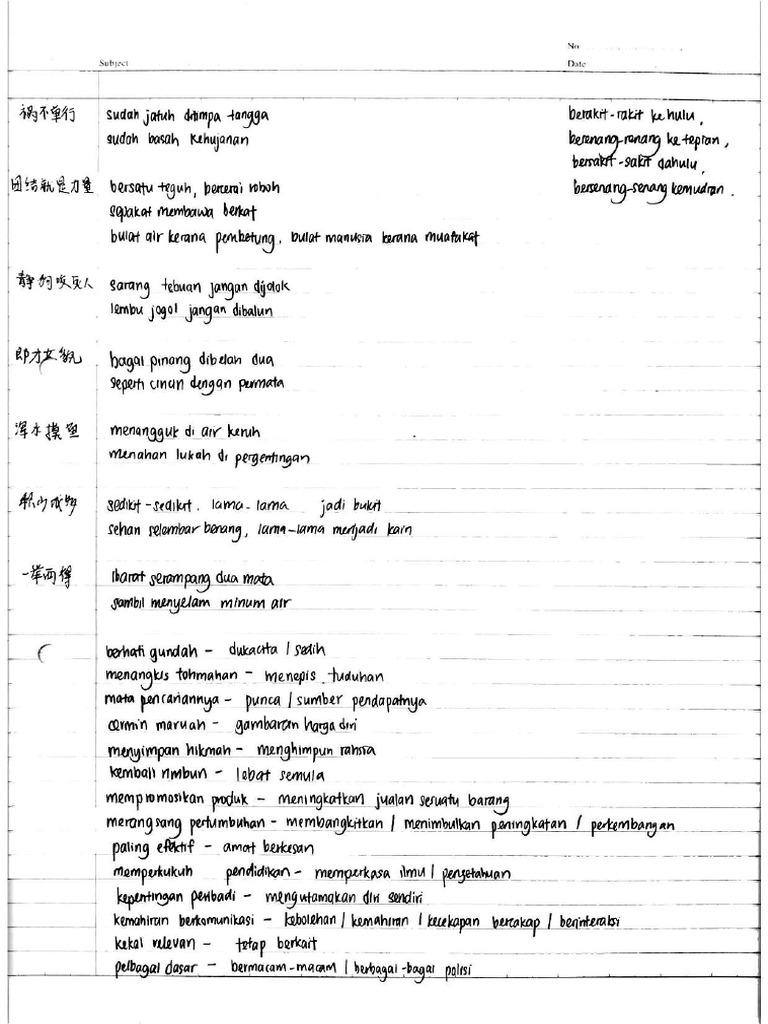 No
Subject
Date
祸不单行 sudah jatuh ditimpa tangga
sudah basah kehujanan
berakit-rakit ke hulu,
berenang-renang ke tepian,
bersakit-sakit dahulu,
bersenang-senang kemudian.
团结就是力量 bersatu teguh, bercerai roboh
sepakat membawa berkat
bulat air kerana pembetung, bulat manusia kerana muafakat
静狗咬死人 sarang tebuan jangan dijolok
lembu jogol jangan dibalun
郎才女貌 bagai pinang dibelah dua
seperti cincin dengan permata
浑水摸鱼 menangguk di air keruh
menahan lukah di pergentingan
积少成多 sedikit-sedikit. lama-lama jadi bukit
sehari selembar benang, lama-lama menjadi kain
一举两得 ibarat serampang dua mata
sambil menyelam minum air
berhati gundah - dukacita / sedih
menangkis tohmahan - menepis tuduhan
mata pencariannya - punca / sumber pendapatnya
cermin maruah - gambaran harga diri
menyimpan hikmah - menghimpun rahsia
kembali rimbun - lebat semula
mempromosikan produk - meningkatkan jualan sesuatu barang
merangsang pertumbuhan - membangkitkan / menimbulkan peningkatan / perkembangan
paling efektif - amat berkesan
memperkukuh pendidikan - memperkasa ilmu / pengetahuan
kepentingan peribadi - mengutamakan diri sendiri
kemahiran berkomunikasi - kebolehan / kemahiran / kecekapan bercakap / berinteraksi
kekal relevan - tetap berkait
pelbagai dasar - bermacam-macam / berbagai-bagai polisi